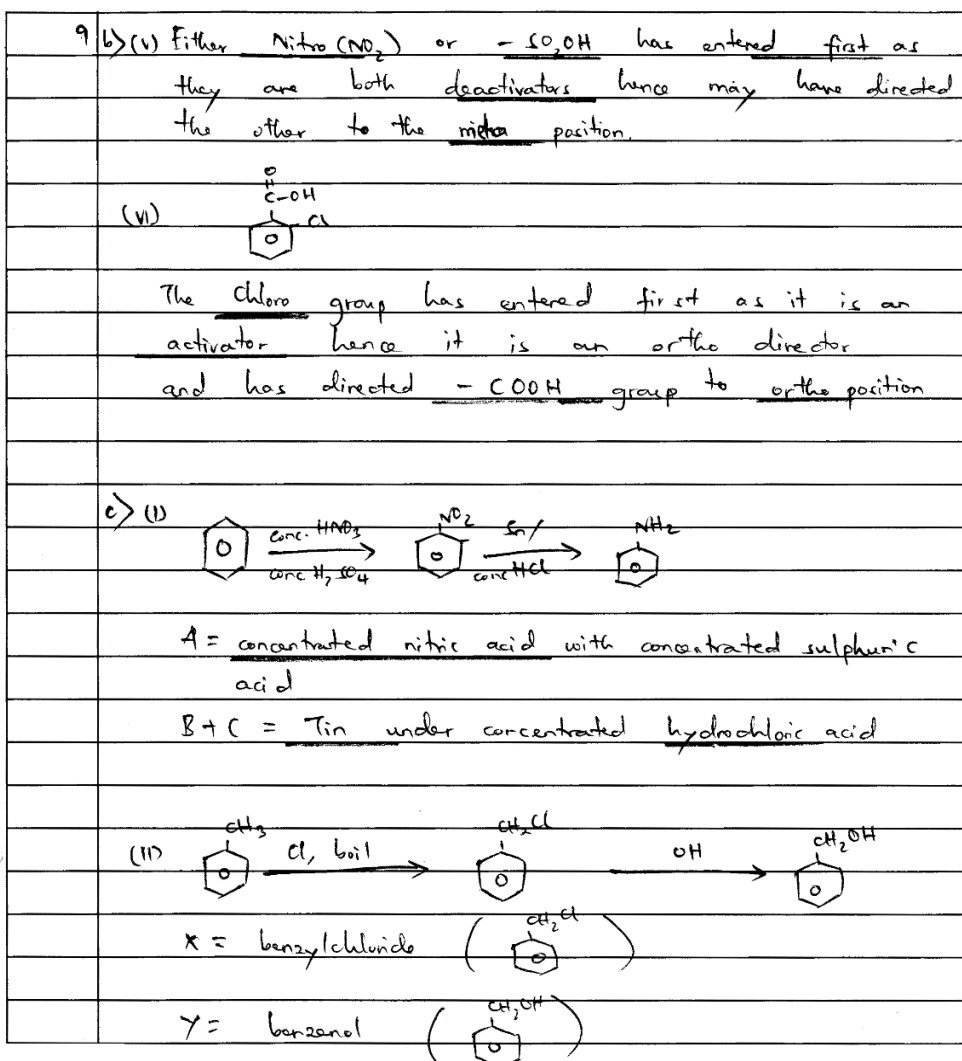 9 b) (v) Either Nitro (NO2) or - SO2OH has entered first as
they are both deactivators hence may have directed
the other to the meta position.
O
C-OH
(vi) Cl
The Chloro group has entered first as it is an
activator hence it is an ortho director
and has directed - COOH group to ortho position
c) (I) conc. HNO3 NO2 Sn/ NH2
conc H2SO4 conc HCl
A = concentrated nitric acid with concentrated sulphuric
acid
B + C = Tin under concentrated hydrochloric acid
CH3 CH2Cl CH2OH
(II) Cl, boil OH
X = benzylchloride ( CH2Cl )
Y = benzenol ( CH2OH )